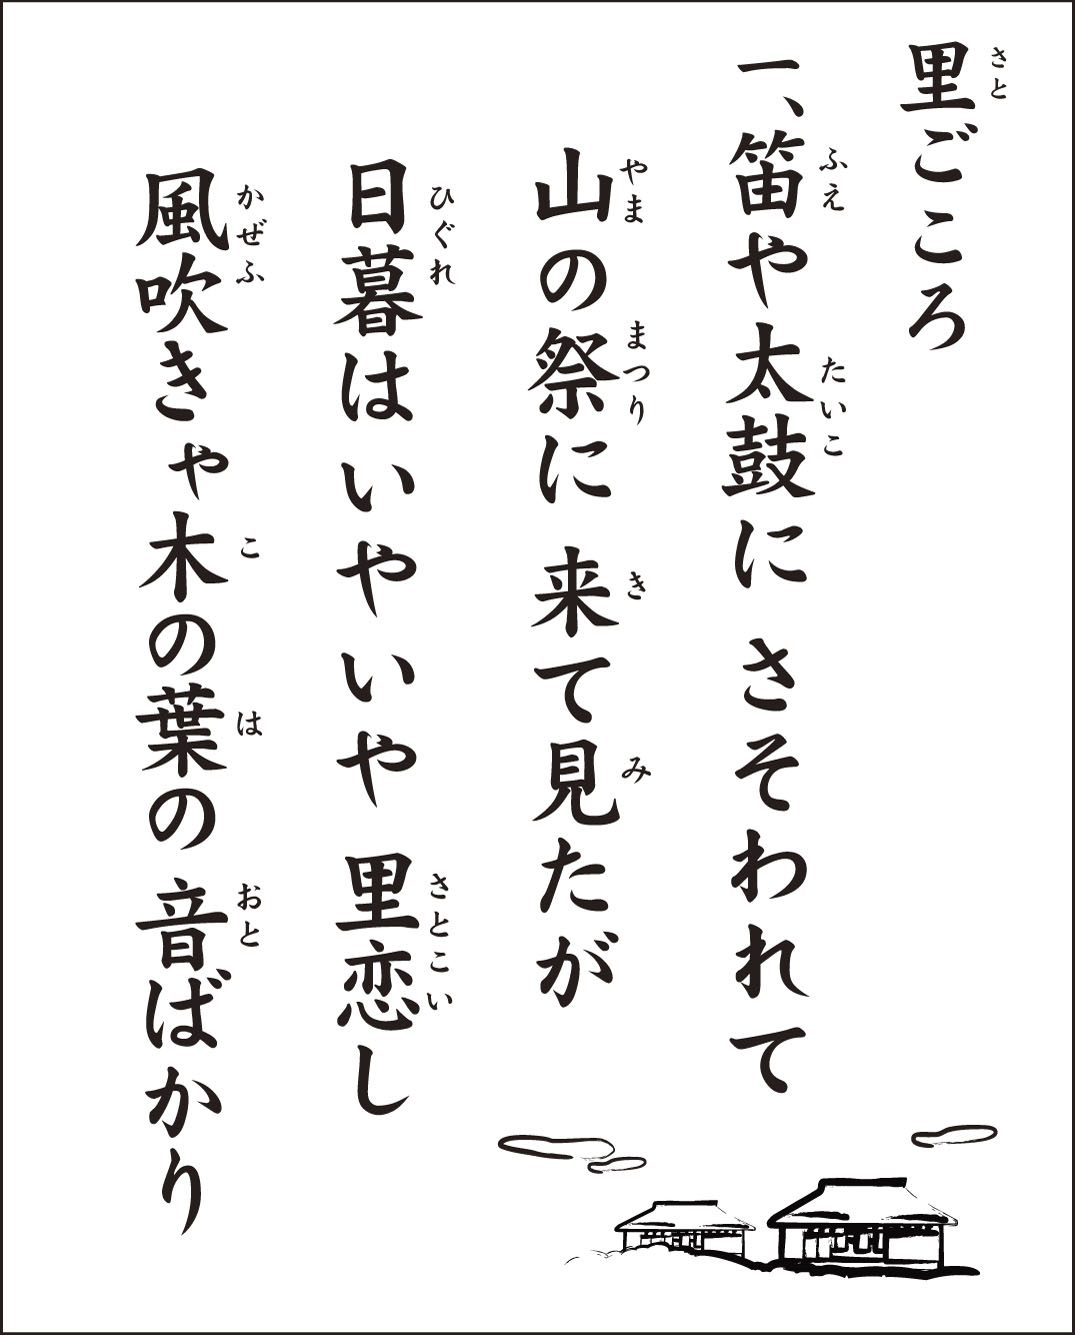 里ごころ
一、笛や太鼓に さそわれて
山の祭に 来て見たが
日暮はいやいや 里恋し
風吹きゃ木の葉の 音ばかり
さと
ふえ
たいこ
やま
まつり
き
み
ひぐれ
さとこい
かぜふ
こ
は
おと